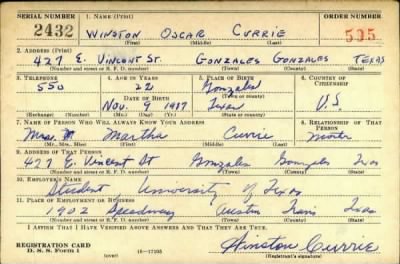 SERIAL NUMBER 1. NAME (Print) ORDER NUMBER
2432 WINSTON OSCAR CURRIE 505
(First) (Middle) (Last)
2. ADDRESS (Print)
427 E. VINCENT ST. GONZALES GONZALES TEXAS
(Number and street or R. F. D. number) (Town) (County) (State)
3. TELEPHONE 4. AGE IN YEARS 5. PLACE OF BIRTH 6. COUNTRY OF CITIZENSHIP
550 22 Gonzales
DATE OF BIRTH (Town or county)
Nov. 9 1917 Texas U.S.
(Exchange) (Number) (Mo.) (Day) (Yr.) (State or country)
7. NAME OF PERSON WHO WILL ALWAYS KNOW YOUR ADDRESS 8. RELATIONSHIP OF THAT PERSON
Mrs. M Martha Currie Mother
(Mr., Mrs., Miss) (First) (Middle) (Last)
9. ADDRESS OF THAT PERSON
427 E. Vincent St Gonzales Gonzales Texas
(Number and street or R. F. D. number) (Town) (County) (State)
10. EMPLOYER'S NAME
Student University of Texas
11. PLACE OF EMPLOYMENT OR BUSINESS
1902 Speedway Austin Travis Texas
(Number and street or R. F. D. number) (Town) (County) (State)
I AFFIRM THAT I HAVE VERIFIED ABOVE ANSWERS AND THAT THEY ARE TRUE.
REGISTRATION CARD
D. S. S. Form 1 (over) 16-17105
Winston Currie
(Registrant's signature)